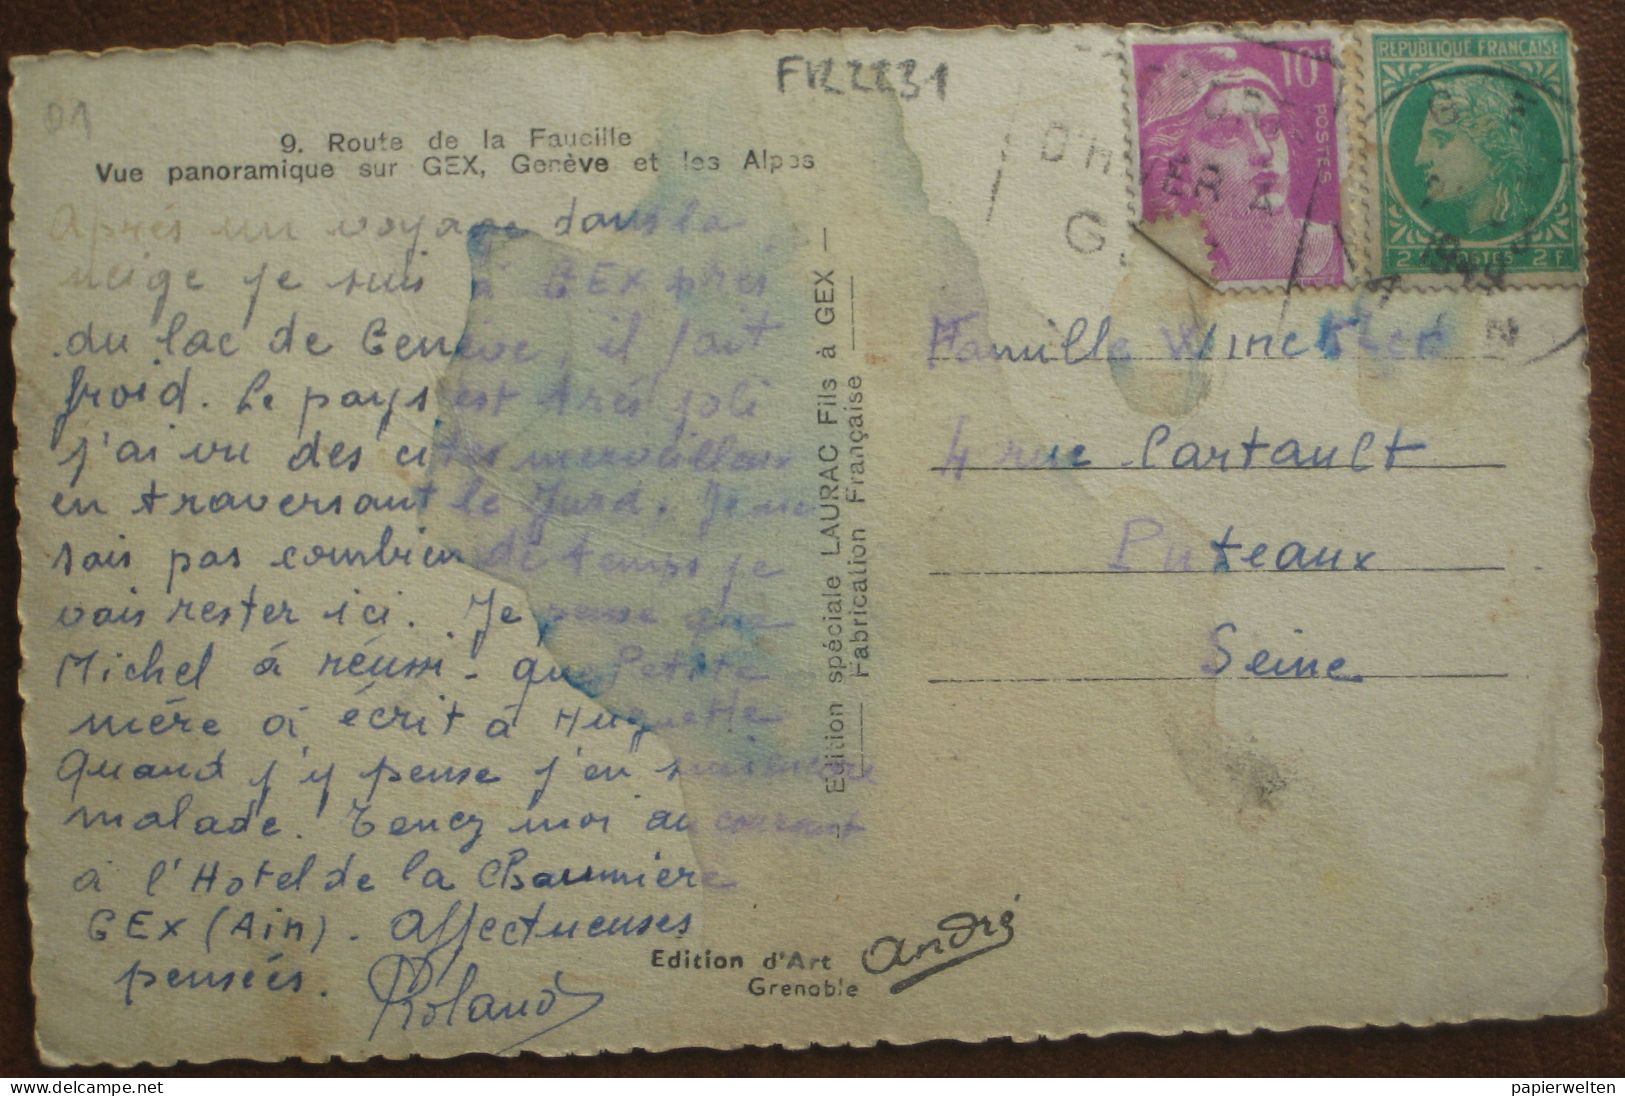 FR2231
01
9. Route de la Faucille
Vue panoramique sur GEX, Genève et les Alpes
Après un voyage dans la
neige je suis à GEX près
du lac de Genève, il fait
froid. Le pays est très joli
j'ai vu des cites merveilleux
en traversant le Jura. Je ne
sais pas combien de temps je
vais rester ici. Je pense que
Michel à réussi - que Petite
mère à écrit à Huguette
Quand j'y pense j'en suis
malade. Tenez moi au courant
à l'Hotel de la Chaumière
GEX (Ain). Affectueuses
pensées. Roland
Edition spéciale LAURAC Fils à GEX
Fabrication Française
Edition d'Art André
Grenoble
10F
POSTES
REPUBLIQUE FRANÇAISE
2 POSTES 2F
D'H
G
1949
Famille Winckler
4 rue Cartault
Puteaux
Seine
papierwelten
www.delcampe.net